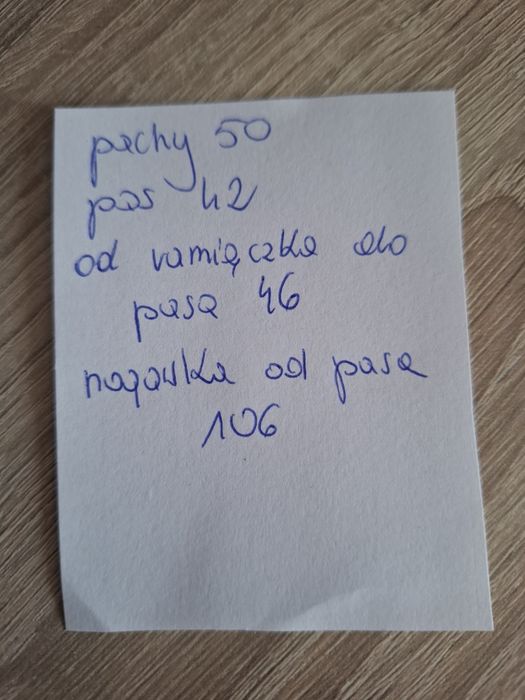 pachy 50
pas 42
od ramiączka do
pasa 46
nogawka od pasa
106